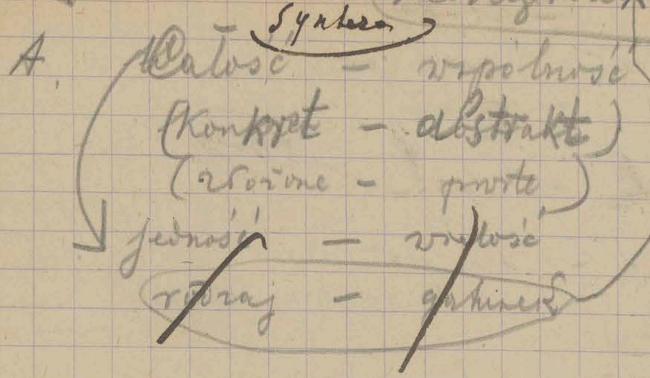 Synteza
A. Całość – wspólność
(Konkret – abstrakt)
(złożone – proste)
jedność – wielość
rodzaj – gatunek